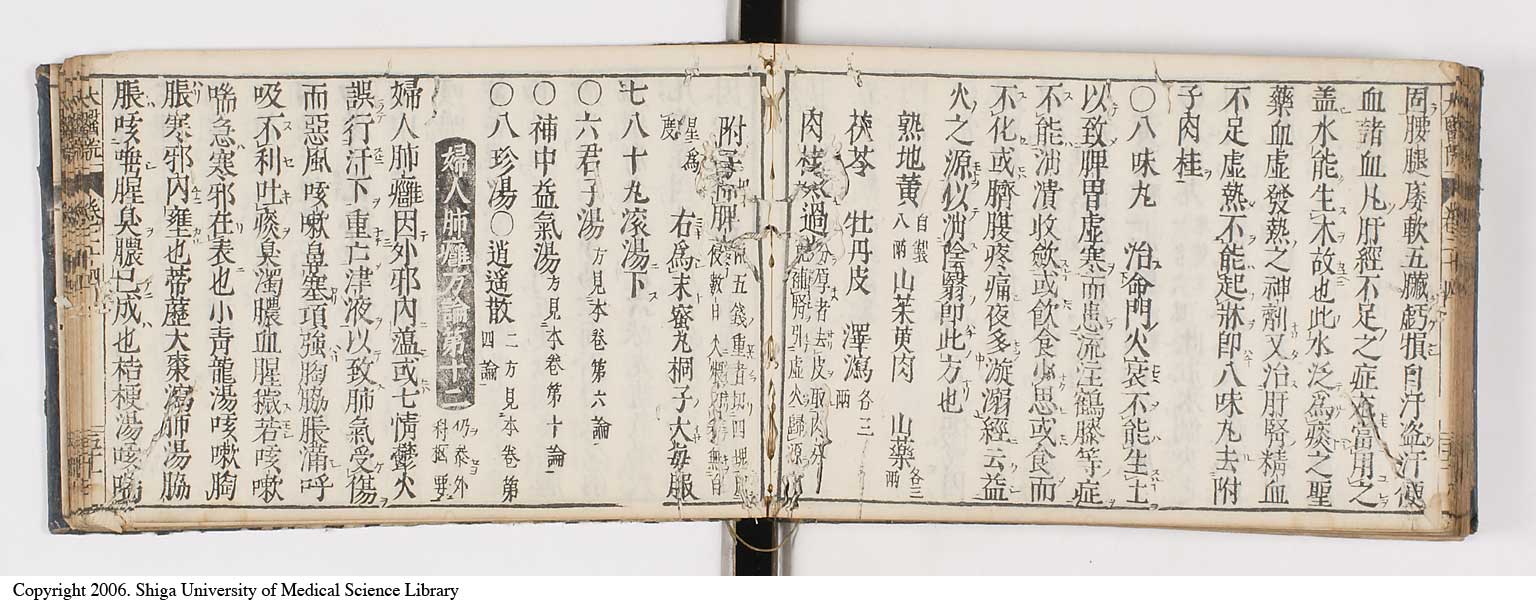 固腰腿痿軟五臟虧損自汗盗汗便
血諸血凡肝經不足之症尤當用之
盖水能生木故也此水泛爲痰之聖
藥血虚發熱之神劑又治肝腎精血
不足虚熱不能起牀即八味丸去附
子肉桂
〇八味丸 治命門火衰不能生土
以致脾胃虚寒而患流注鶴膝等症
不能消潰收斂或飲食少思或食而
不化或臍腹疼痛夜多漩溺經云益
火之源以消陰翳即此方也
熟地黄八兩自製 山茱萸肉 山藥各三兩
茯苓 牡丹皮 澤瀉各三兩
肉桂
附子
右爲末蜜丸桐子大每服
七八十丸滚湯下
〇六君子湯方見本卷第六論
〇補中益氣湯方見本卷第十論
〇八珍湯〇逍遥散二方見本卷第四論
婦人肺癰方論第十二仍參外科樞要
婦人肺癰因外邪内藴或七情鬱火
誤行汗下重亡津液以致肺氣受傷
而惡風咳嗽鼻塞項強胸脇脹滿呼
吸不利吐痰臭濁膿血腥穢若咳嗽
喘急寒邪在表也小青龍湯咳嗽胸
脹寒邪内壅也葶藶大棗瀉肺湯脇
脹咳喘腥臭膿已成也桔梗湯咳喘
Copyright 2006. Shiga University of Medical Science Library